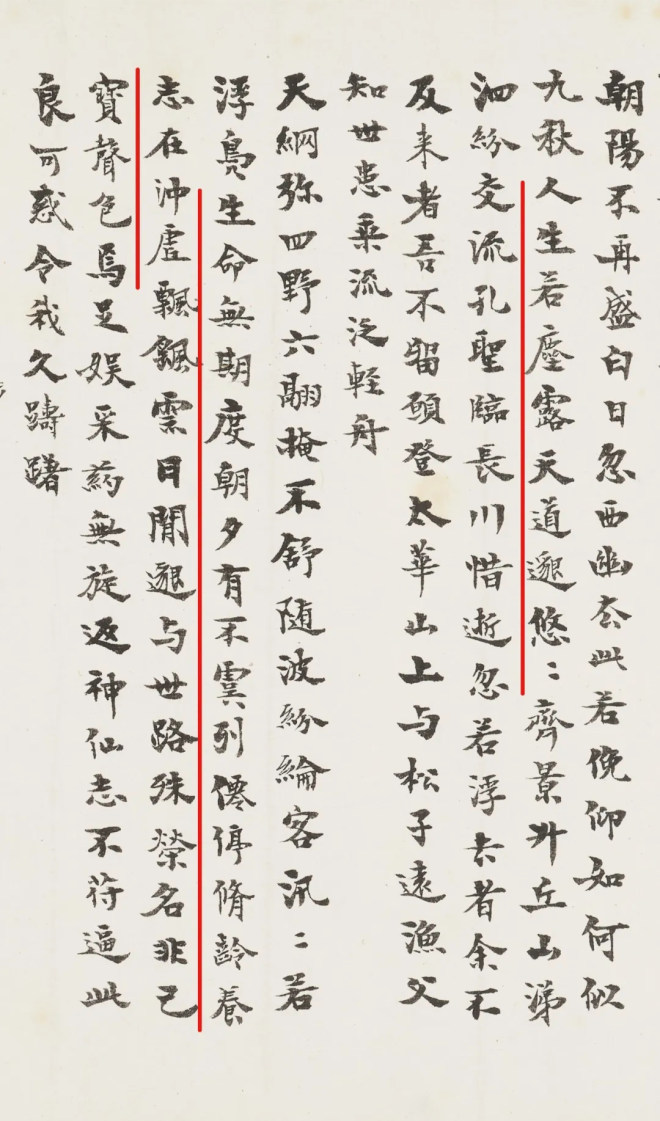 朝陽不再盛白日忽西幽去此若俛仰知何似
九秋人生若塵露天道邈悠〻齊景升丘山涕
泗紛交流孔聖臨長川惜逝忽若浮去者余不
及来者吾不留願登太華山上与松子遠漁父
知世患乗流泛軽舟
天綱弥四野六翮掩不舒随波紛綸客汎〻若
浮鳧生命無期度朝夕有不虞列僊停脩齡養
志在沖虚飄飖雲日閒邈与世路殊榮名非己
寶聲色焉足娯采葯無旋返神仙志不苻逼此
良可惑令我久躊躇